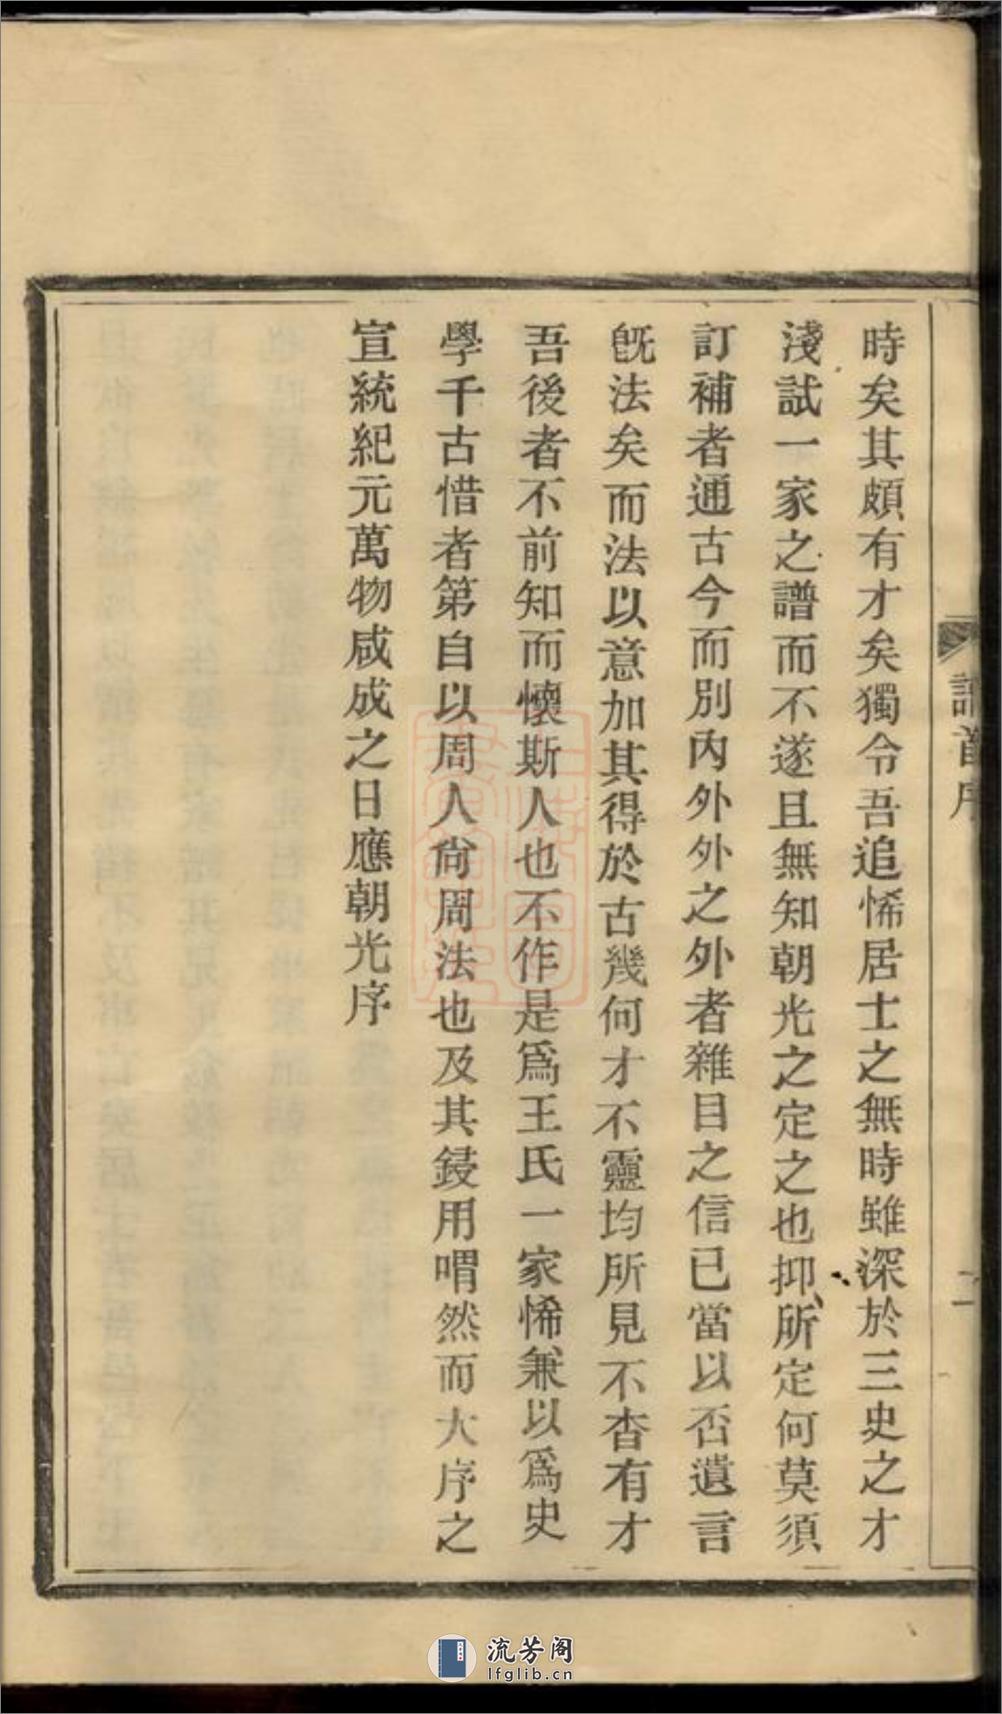 時矣其頗有才矣獨令吾追悕居士之無時雖深於三史之才
淺試一家之譜而不遂且無知朝光之定之也抑所定何莫須
訂補者通古今而別內外外之外者雜目之信已當以否遺言
旣法矣而法以意加其得於古幾何才不靈均所見不杳有才
吾後者不前知而懷斯人也不作是爲王氏一家悕兼以爲史
學千古惜者第自以周人尙周法也及其鋟用喟然而大序之
宣統紀元萬物咸成之日應朝光序
譜首序
二
流芳阁
lfglib.cn